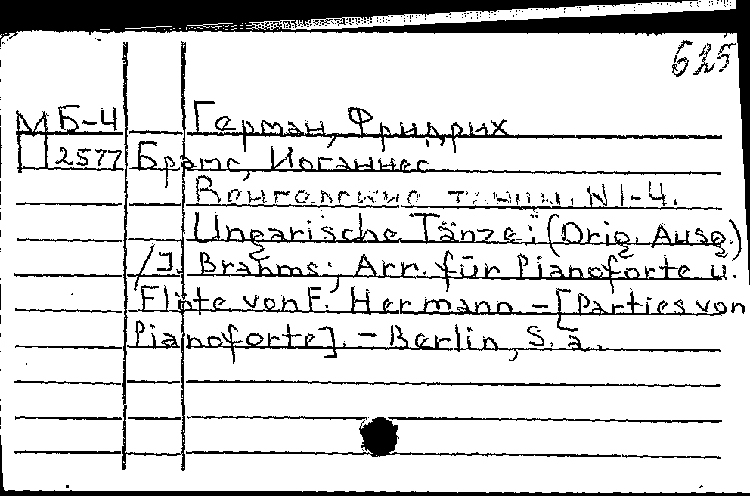 625
М Б-4 Герман, Фридрих
2577 Брамс, Иоганнес
Венгерские танцы. N 1-4.
Ungarische Tänze; (Orig. Ausg.)
/J. Brahms; Arr. für Pianoforte u.
Flöte von F. Hermann - [Parties von
Pianoforte]. - Berlin, S. a.